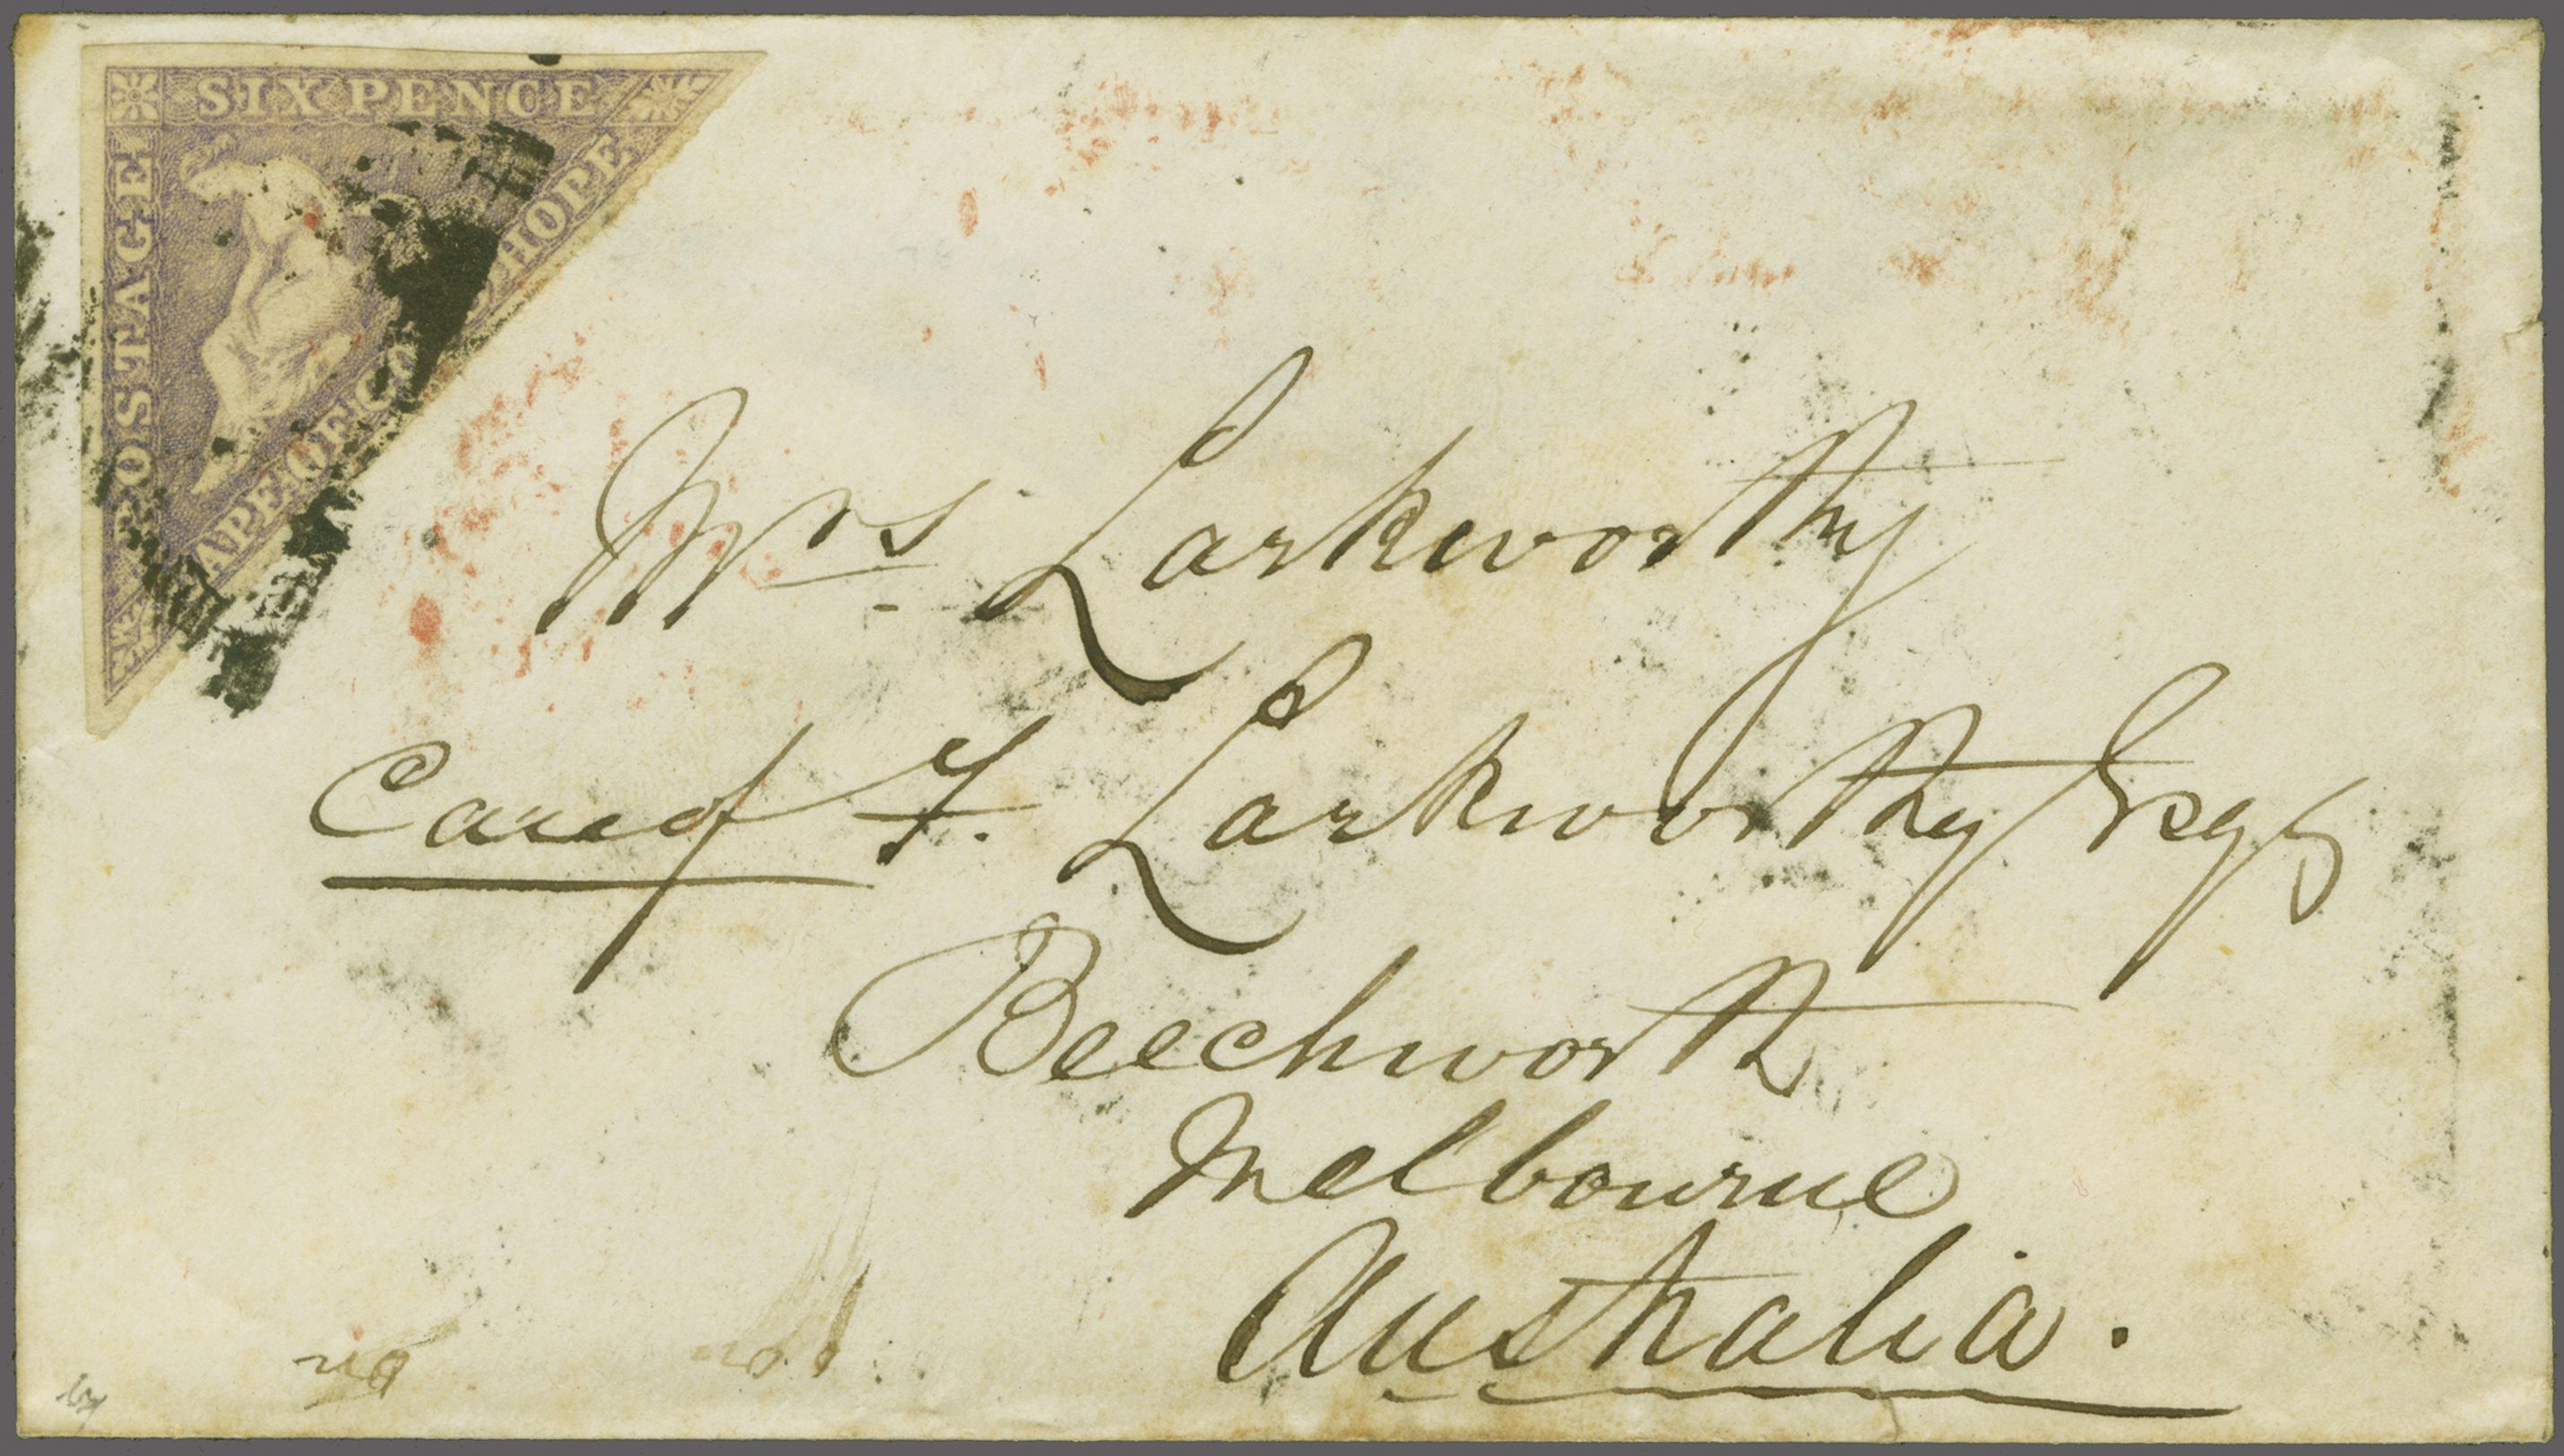 SIX PENCE
POSTAGE
CAPE OF GOOD HOPE
Mrs Larkworthy
Care of F. Larkworthy Esqr
Beechworth
Melbourne
Australia.